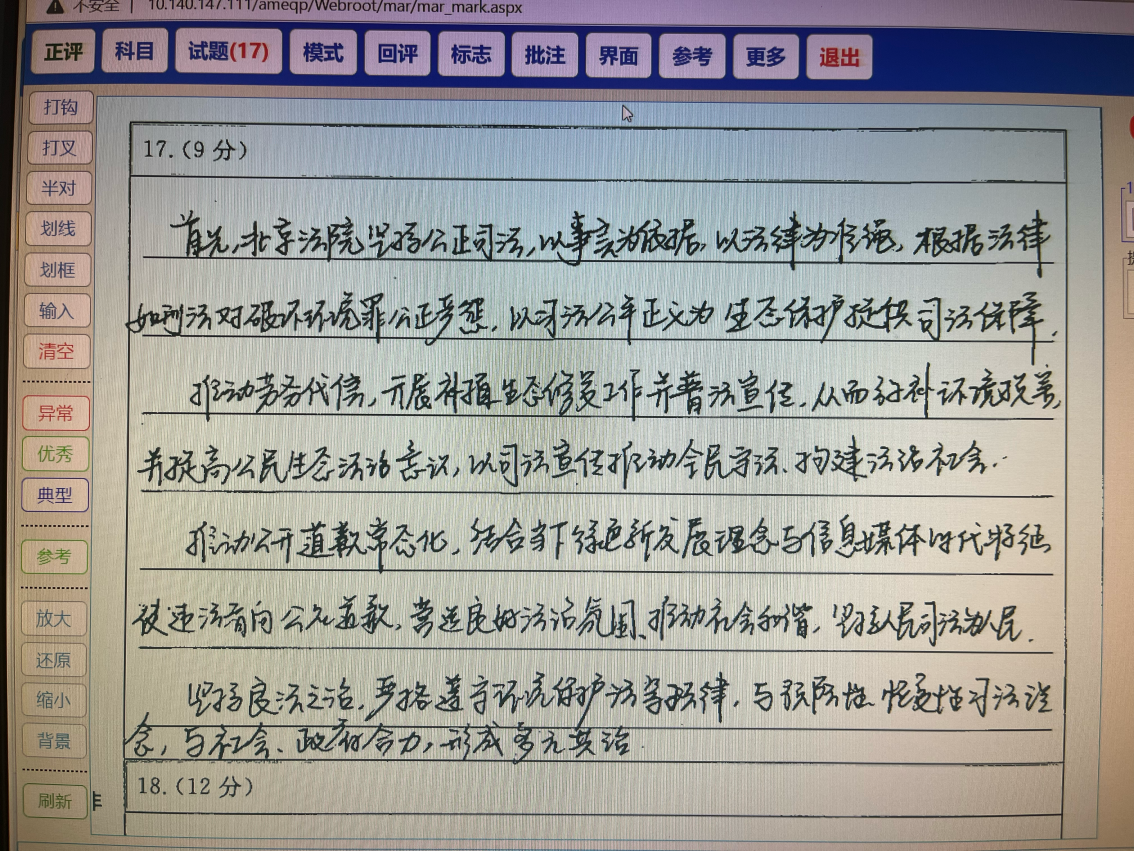 不安全 | 10.140.147.111/ameqp/Webroot/mar/mar_mark.aspx
正评 科目 试题(17) 模式 回评 标志 批注 界面 参考 更多 退出
打钩
打叉
半对
划线
划框
输入
清空
异常
优秀
典型
参考
放大
还原
缩小
背景
刷新
17.(9 分)
首先,北京法院坚持公正司法,以事实为依据,以法律为准绳,根据法律
如刑法对破坏环境罪公正惩,以司法公平正义为生态保护提供司法保障.
推动劳务代偿,开展补植生态修复工作并普法宣传,从而弥补环境损害,
并提高公民生态法治意识,以司法宣传推动全民守法、构建法治社会.
推动公开道歉常态化,结合当下绿色新发展理念与信息媒体时代将组
使违法者向公众道歉,营造良好法治氛围、推动社会和谐,坚持人民司法为人民.
坚持良法之治,严格遵守环境保护法等法律,与预防性 恢复性司法理
念,与社会、政府合力,形成多元共治
18.(12 分)